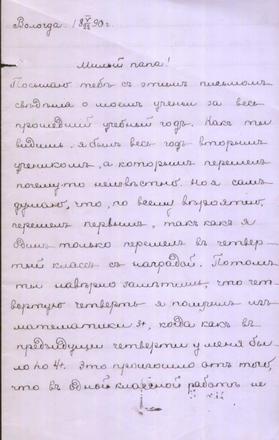 Вологда. 18 V/22 90 г.
Милый папа!
Посылаю тебѣ съ этимъ письмомъ
свѣдѣнiя о моемъ ученiи за весь
прошедшiй учебный годъ. Какъ ты
видишь, я былъ весь годъ вторымъ
ученикомъ, а которымъ перешелъ
почему-то неизвѣстно. Но я самъ
думаю, что, по всему вѣроятiю,
перешелъ первымъ, такъ какъ я
одинъ только перешелъ въ четвер-
тый классъ съ наградой. Потомъ
ты навѣрно замѣтишь, что чет-
вертую четверть я получилъ изъ
математики 3+, когда какъ въ
предъидущей четверти у меня бы-
ло по 4+. Это произошло отъ того,
что въ одной классной работѣ не